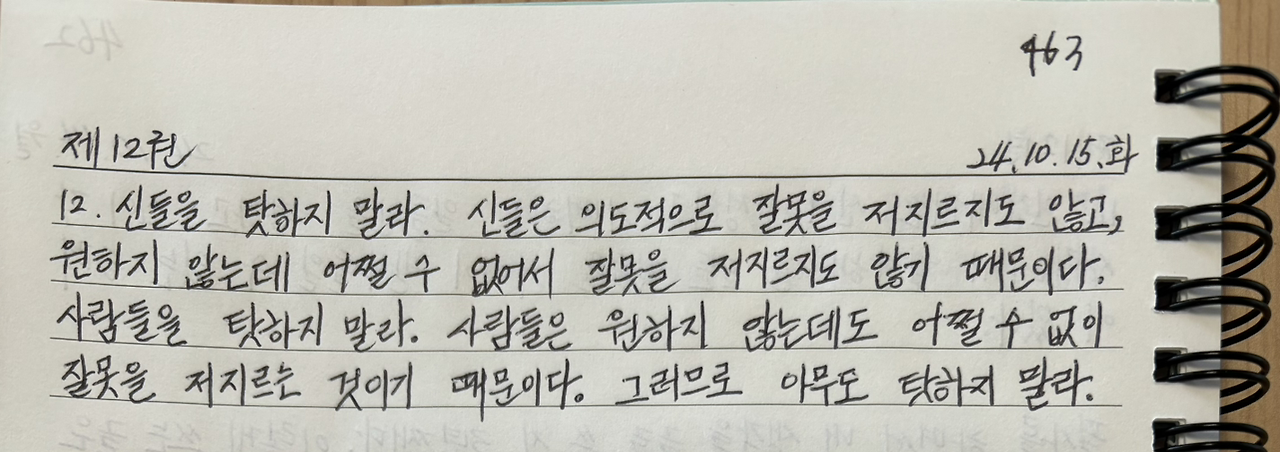 463
제12권 24.10.15.화
12. 신들을 탓하지 말라. 신들은 의도적으로 잘못을 저지르지도 않고,
원하지 않는데 어쩔 수 없어서 잘못을 저지르지도 않기 때문이다.
사람들을 탓하지 말라. 사람들은 원하지 않는데도 어쩔 수 없이
잘못을 저지르는 것이기 때문이다. 그러므로 아무도 탓하지 말라.